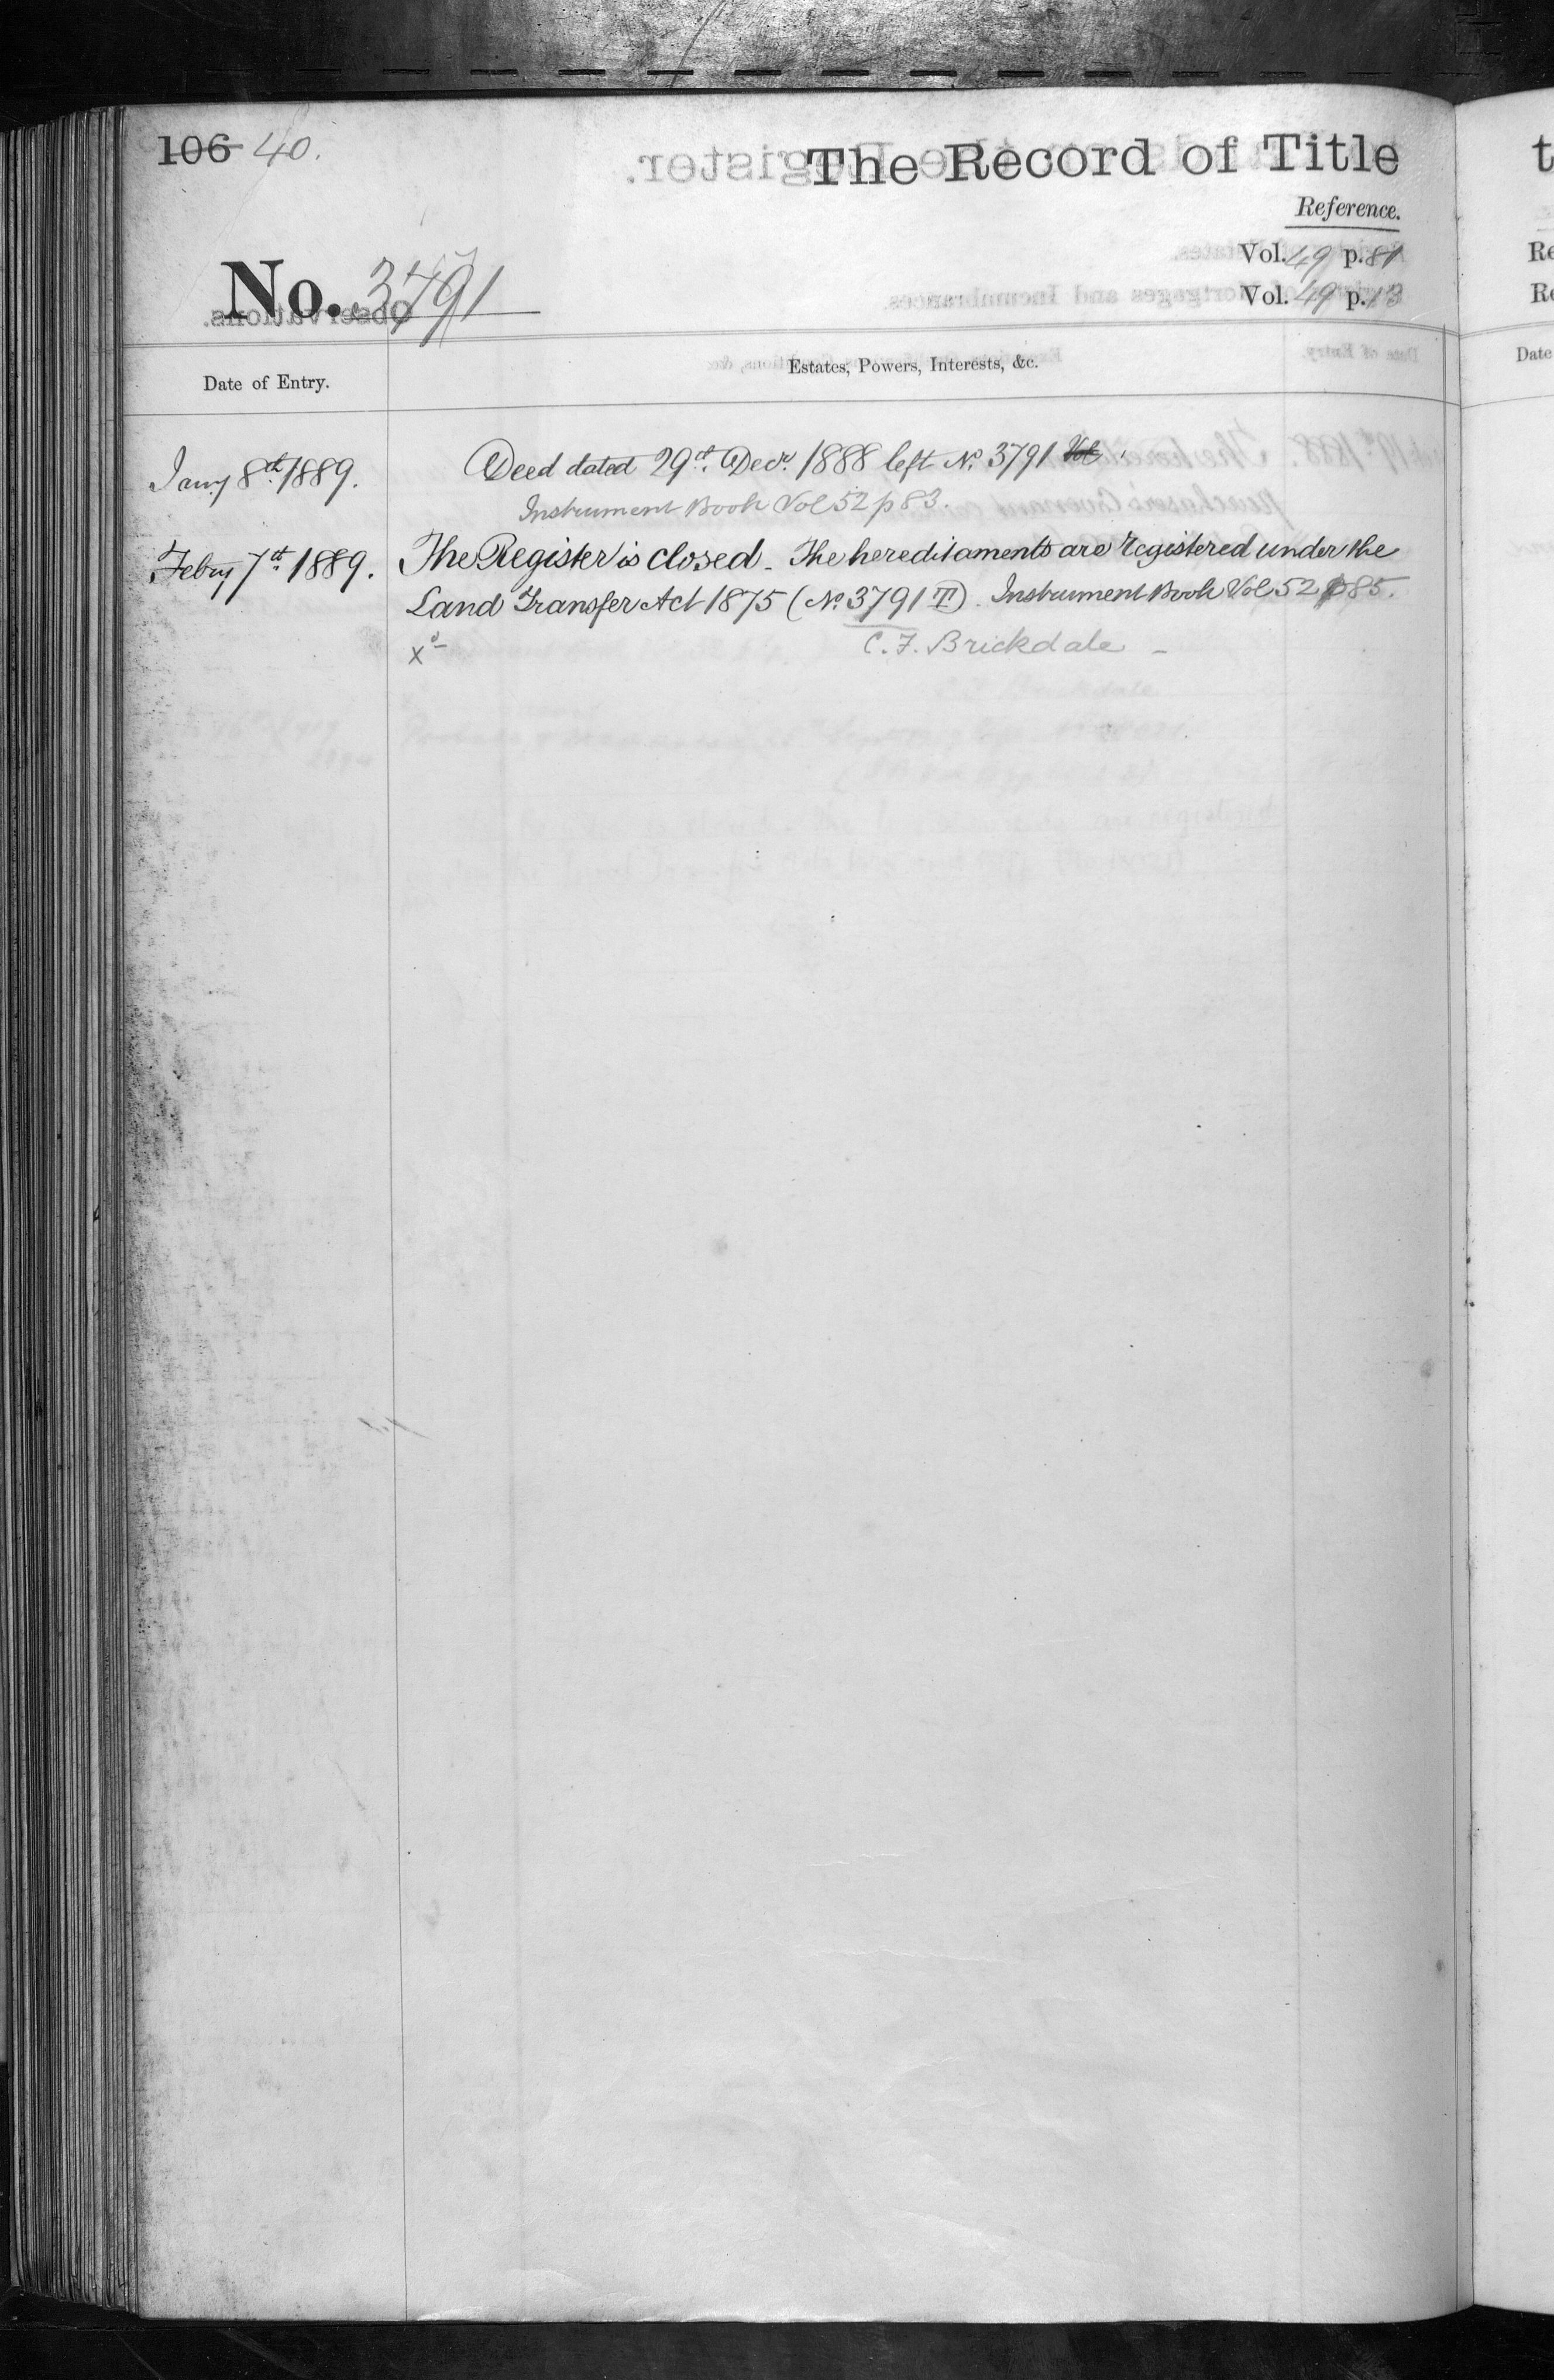 106 40.
The Record of Title
Reference.
Vol. 49 p. 81
No. 3791
Vol. 49 p. 13
Date of Entry.
Estates, Powers, Interests, &c.
Jany 8th 1889.
Deed dated 29th Decr. 1888 left No. 3791 Vol
Instrument Book Vol 52 p 83.
Feby 7th 1889.
The Register is closed - The hereditaments are registered under the
Land Transfer Act 1875 (No. 3791 T). Instrument Book Vol 52 p 85.
C. F. Brickdale -
t
Re
Re
Date